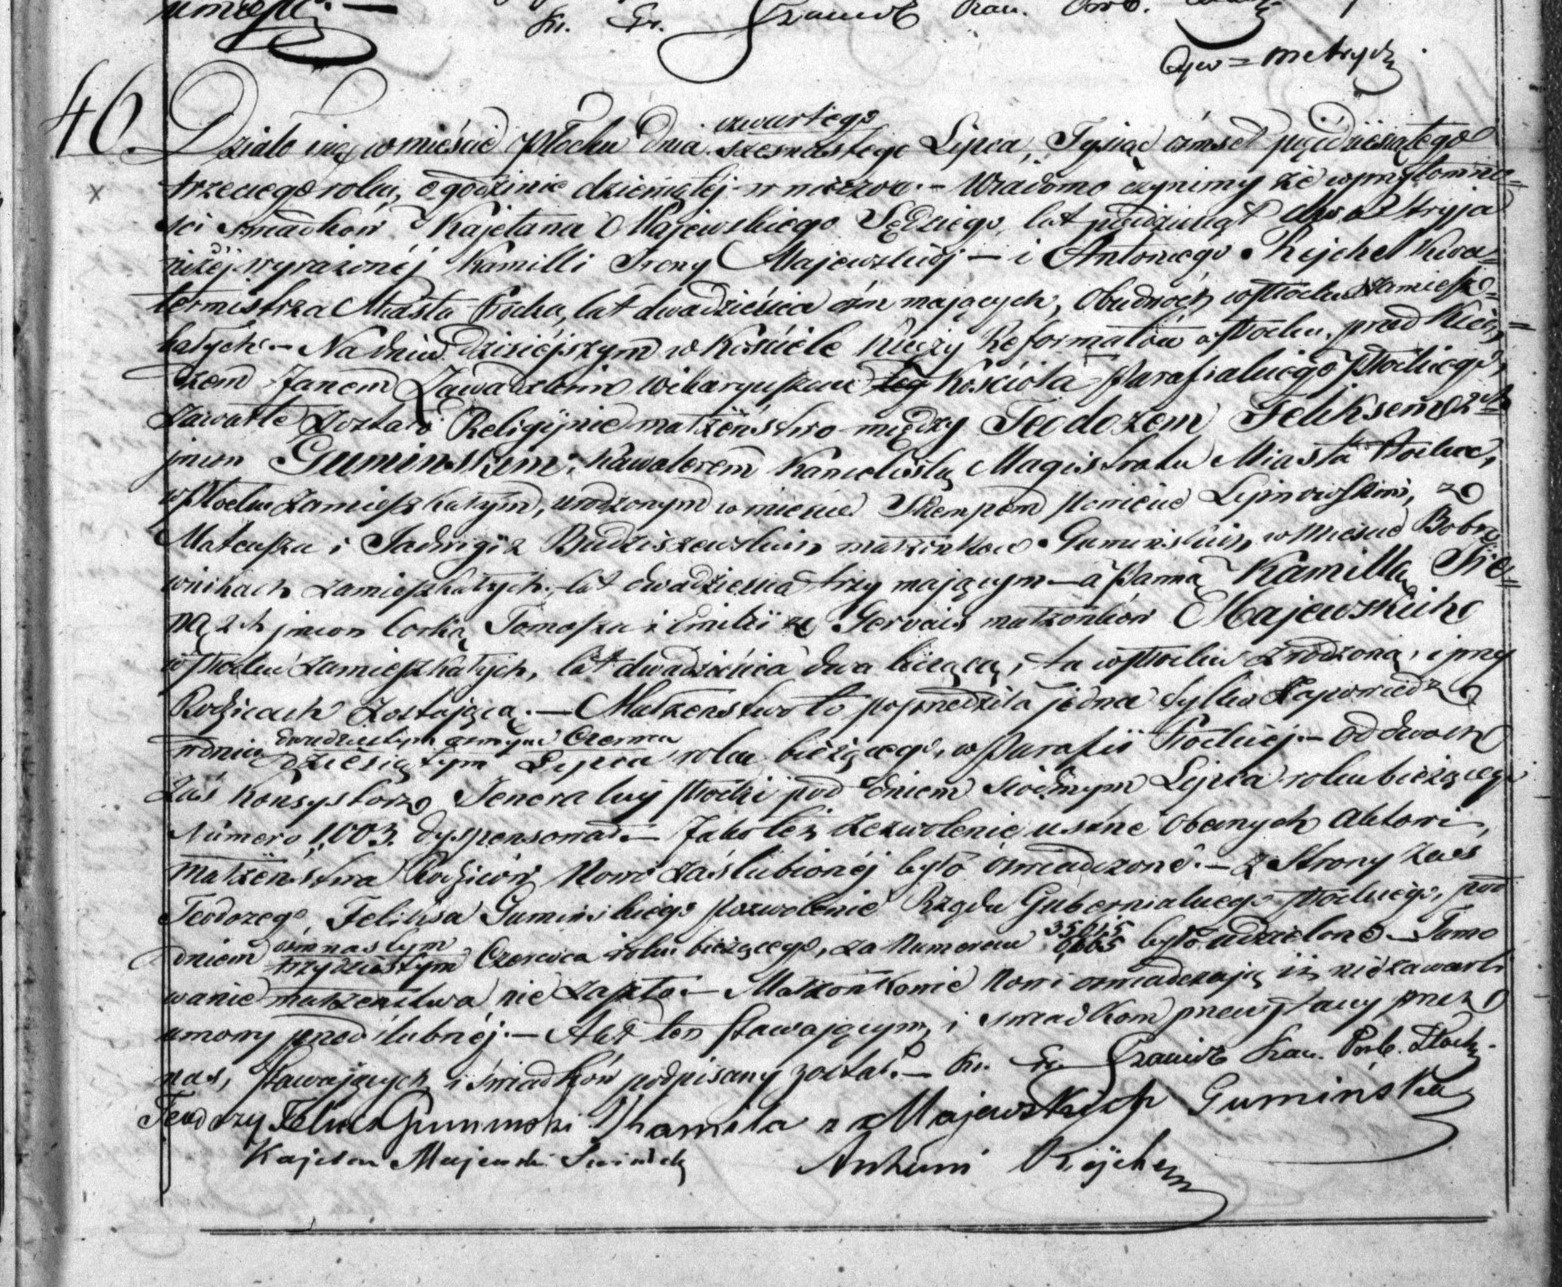 Kr. Fr.
Akt. = metrycz
46.
czwartego
Działo się w mieście Płocku dnia szesnastego Lipca, Tysiąc ośmset pięćdziesiątego
trzeciego roku, o godzinie dziewiątej w wieczor. – Wiadomo czynimy że w przytomno=
ści świadków Kajetana Majewskiego Sędziego, lat pięćdziesiąt dwa Stryja
niżej wyrażonéj Kamilli Ireny Majewskiéj – i Antoniego Rejchel Kwa=
termistrza Miasta Płocka, lat dwadzieścia ośm mających, Obudwóch w Płocku zamiesz=
kałych. – Na dniu dzisiejszym w Kościele Księży Reformatów w Płocku, przed Księ=
dzem Janem Zawadzkim wikaryuszem Kościoła Parafialnego Płockiego,
zawarte zostało Religijnie małżeństwo między Teodozem Feliksem 2ch
imion Gumińskim, kawalerem Kancelistą Magistratu Miasta Płocka,
w Płocku zamieszkałym, urodzonym w mieście Skempem Powiecie Lipnowskim, z
Mateusza i Jadwigi z Budziszewskich małżonków Gumińskich, w Mieście Bobro
wnikach zamieszkałych, lat dwadzieścia trzy mającym – a Panną Kamillą Ire=
ną 2ch imion Corką Tomasza i Emilii z Gervais małżonków Majewskich
w Płocku zamieszkałych, lat dwadzieścia dwa liczącą, tu w Płocku zrodzoną, i przy
Rodzicach zostającą. – Małżeństwo to poprzedziła jedna tylko Zapowiedź
dwudziestym szóstym Czerwca
w dniu dziesiątym Lipca roku bieżącego, w Parafii Płockiéj – od dwóch
zaś Konsystorz Jeneralny Płocki pod dniem siódmym Lipca roku bieżącego
Numero 1,003. dyspensował. – Jako też zezwolenie ustne obecnych Aktowi,
małżeństwa Rodziców Nowo zaślubionéj było oświadczone. – Z Strony zaś
Teodozego Feliksa Gumińskiego pozwolenie Rządu Gubernialnego Płockiego, pod
ośmnastym 35015
dniem trzydziestym Czerwca roku bieżącego, za Numerem było udzielone – Tamo
wanie małżeństwa nie zaszło. – Małżonkowie Nowi oświadczają iż nie zawarli
umowy przedślubnéj. – Akt ten stawającym i świadkom przeczytany przez
nas, stawających i świadków podpisany został. – Kr. Fr. Kan. Prob. Płock.
Teodozy Felix Gumiński Kamila z Majewskich Gumińska
Kajetan Majewski Świadek Antoni Rejchel